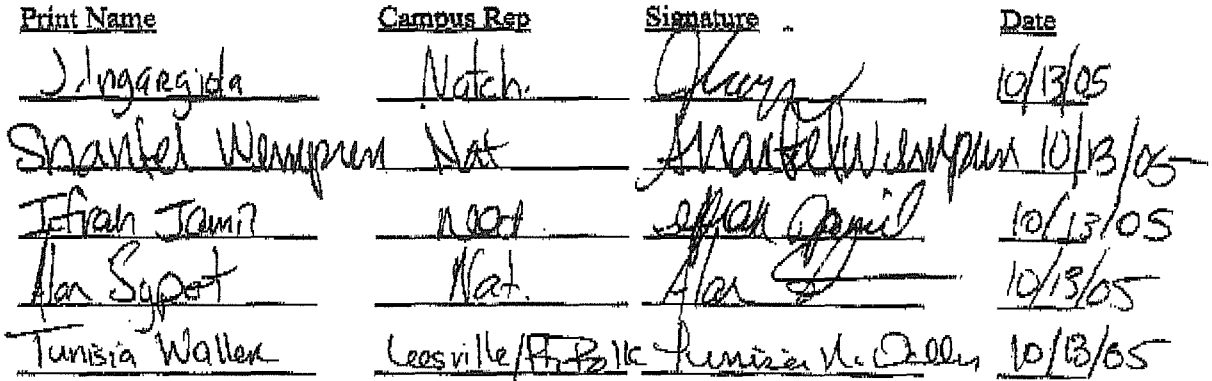 Print Name Campus Rep Signature Date
J. Ingargiola Natch. 10/13/05
Shantel Wempren Nat Shantel Wempren 10/13/05
Ifrah Jamil Ifrah Jamil 10/13/05
Alan Sypot Nat. Alan 10/13/05
Tunisia Waller Leesville/Ft. Polk Tunisia N. Waller 10/13/05